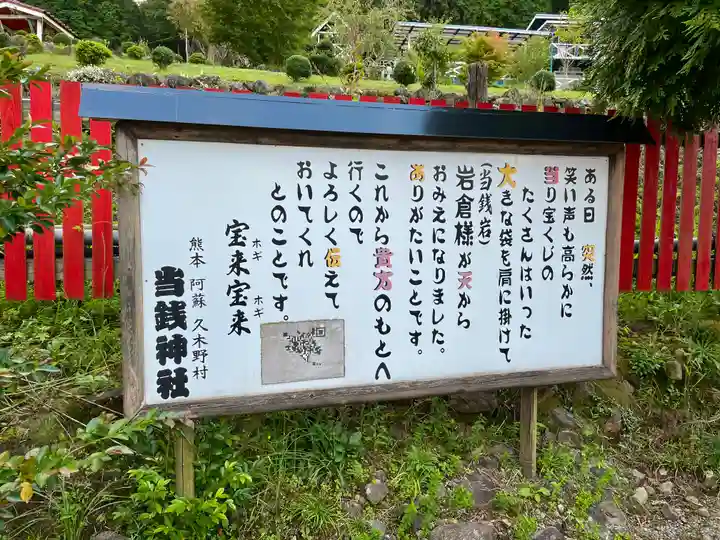 ある日　突然、
笑い声も高らかに
当り宝くじの
たくさんはいった
大きな袋を肩に掛けて
(当銭岩)
岩倉様が天から
おみえになりました。
ありがたいことです。
これから貴方のもとへ
行くので
よろしく伝えて
おいてくれ
とのことです。
ホギ　ホギ
宝来宝来
熊本 阿蘇 久木野村
当銭神社